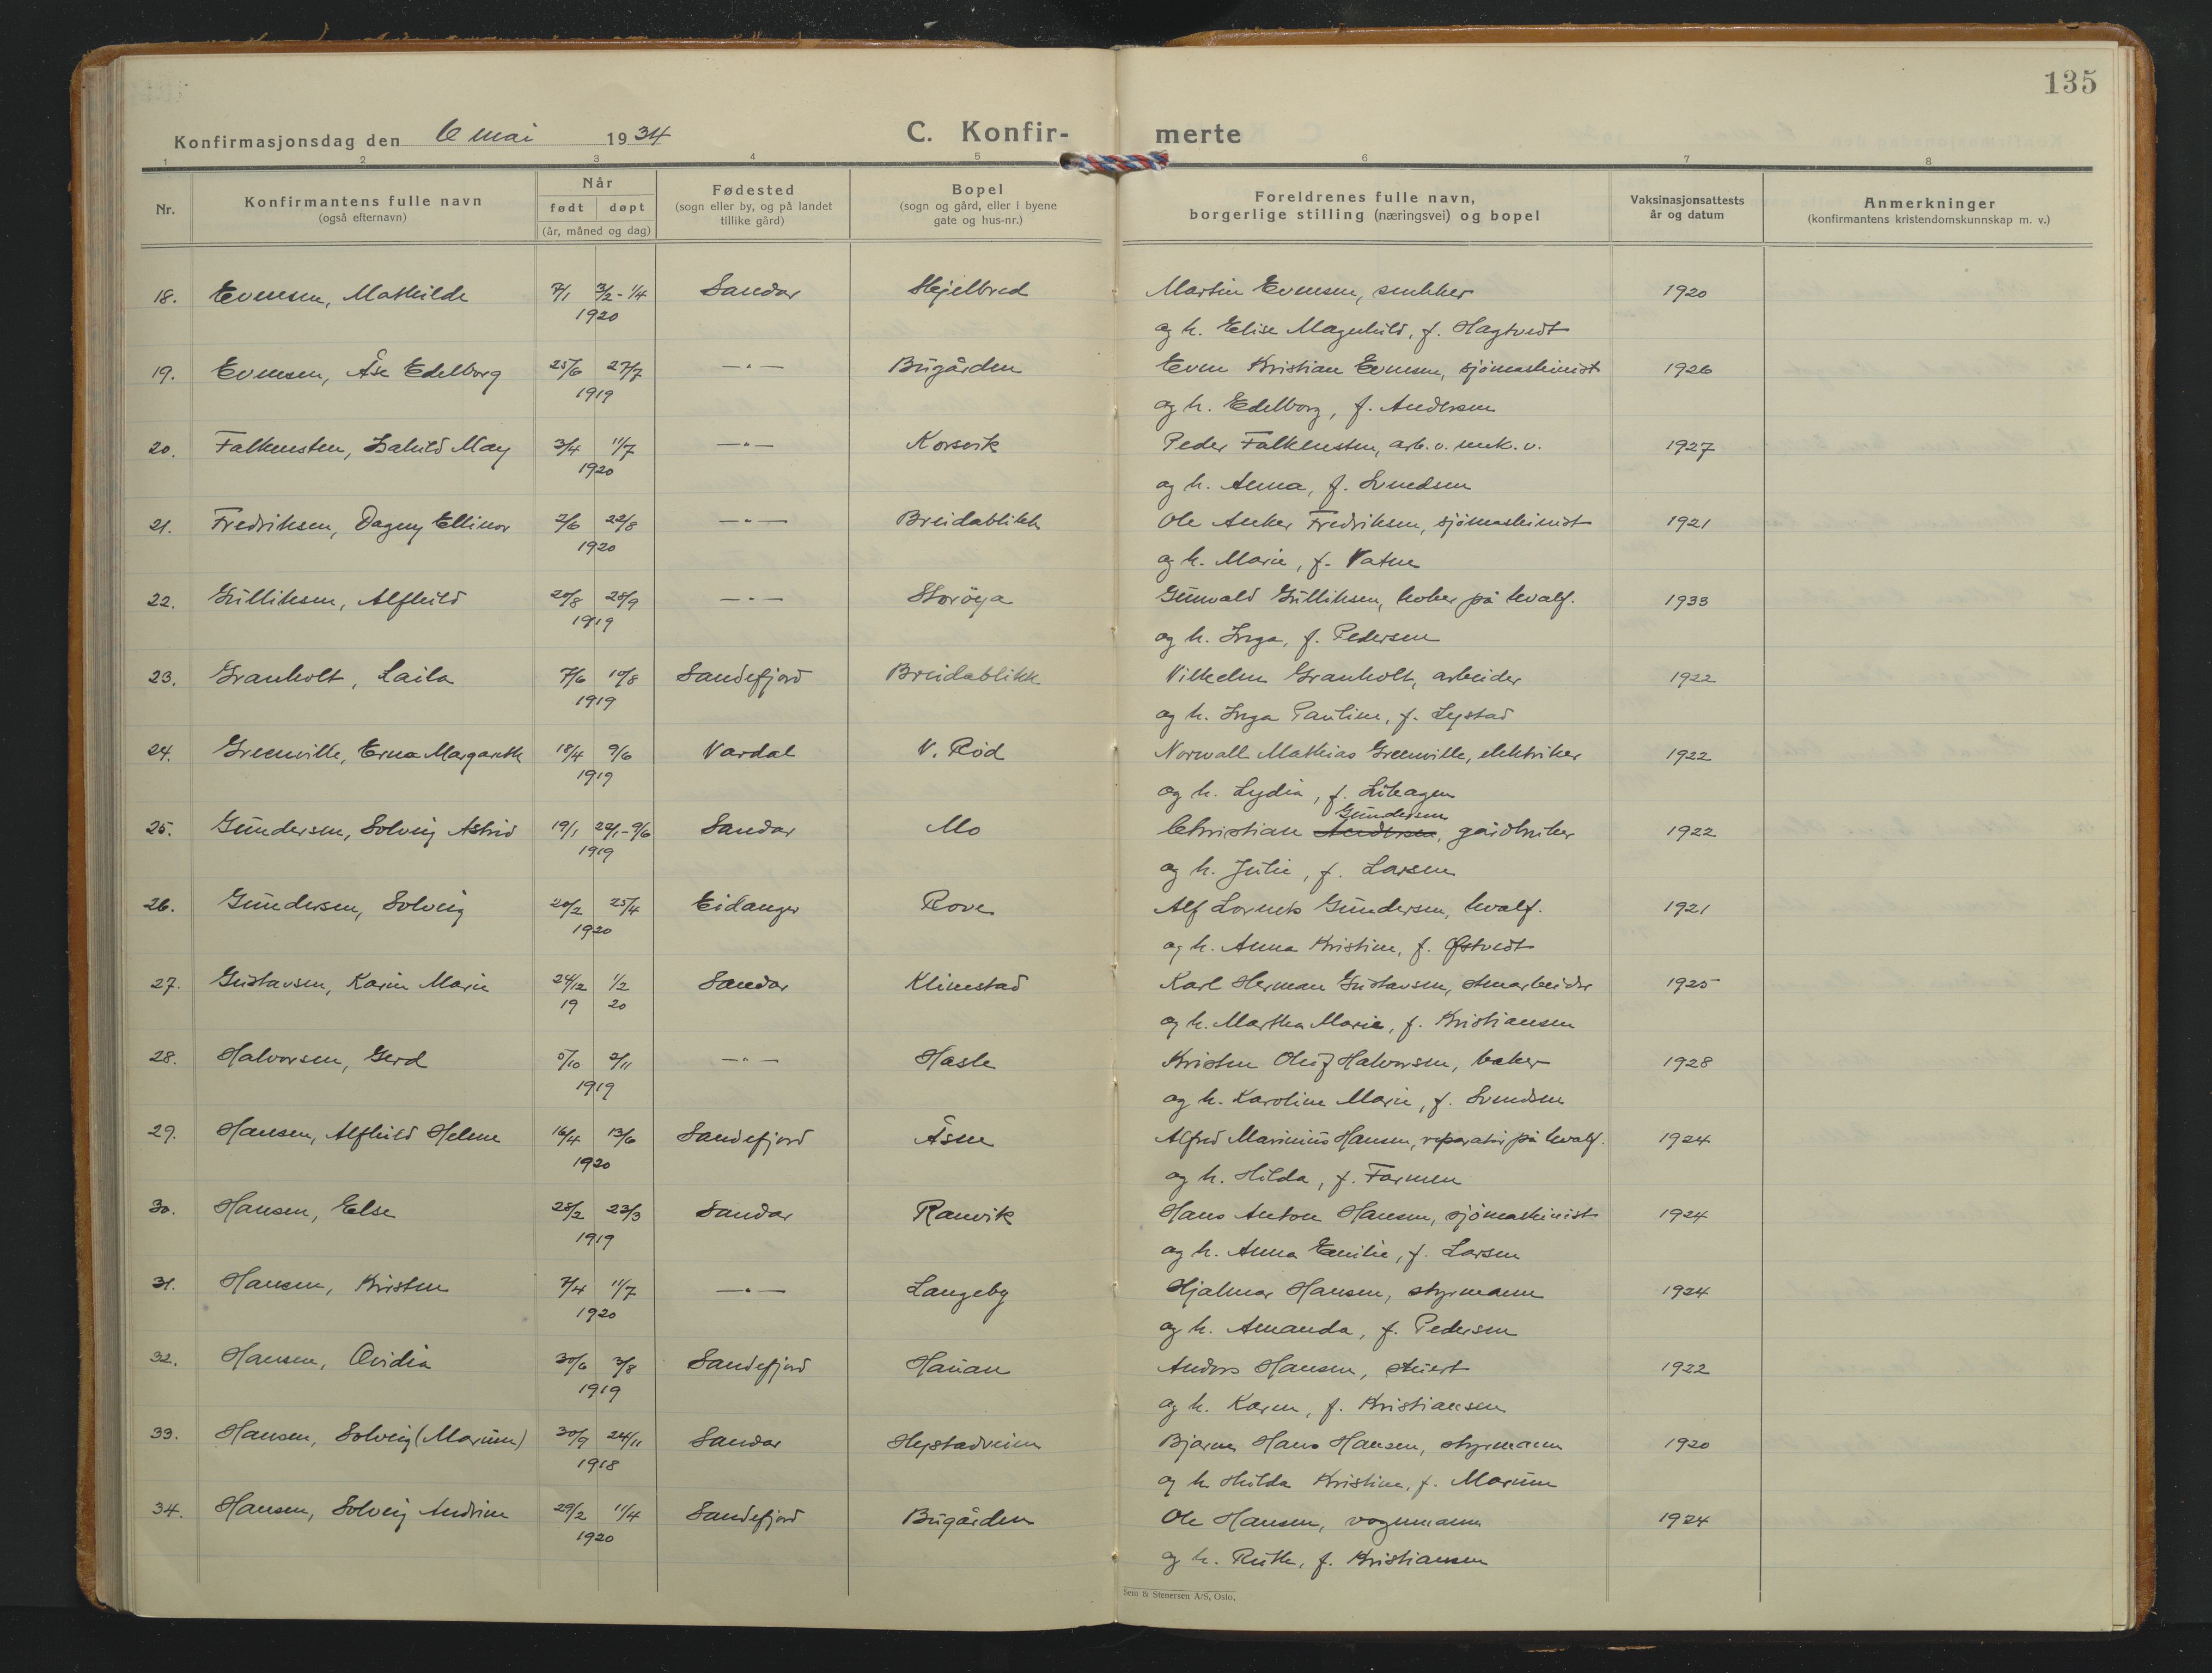 135
Konfirmasjonsdag den 6 mai 1934 C. Konfir- merte
1 2 3 4 5 6 7 8
Nr. Konfirmantens fulle navn (også efternavn) Når født døpt (år, måned og dag) Fødested (sogn eller by, og på landet tillike gård) Bopel (sogn og gård, eller i byene gate og hus-nr.) Foreldrenes fulle navn, borgerlige stilling (næringsvei) og bopel Vaksinasjonsattests år og datum Anmerkninger (konfirmantens kristendomskunnskap m. v.)
18. Evensen, Mathilde 7/1 3/2-1/4 Sandar Skjelbred Martin Evensen, snekker 1920
1920 og h. Elise Magnhild, f. Hagtvedt
19. Evensen, Åse Edelborg 25/6 27/7 —„— Bugården Even Kristian Evensen, sjömaskinist 1926
1919 og h. Edelborg, f. Andersen
20. Falkensten, Isahild May 3/4 11/7 —„— Korsvik Peder Falkensten, arb. v. mek. v. 1927
1920 og h. Anna, f. Svendsen
21. Fredriksen, Dagny Ellinor 2/6 22/8 —„— Breidablikk Ole Anker Fredriksen, sjömaskinist 1921
1920 og h. Marie, f. Vatne
22. Gulliksen, Alfhild 20/8 28/9 —„— Storøya Gunvald Gulliksen, koker på hvalf. 1933
1919 og h. Inga, f. Pedersen
23. Granholt, Laila 7/6 10/8 Sandefjord Breidablikk Vilhelm Granholt, arbeider 1922
1919 og h. Inga Pauline, f. Lystad
24. Greenville, Erna Margareth 18/4 9/6 Vardal V. Röd Norwall Mathias Greenville, elektriker 1922
1919 og h. Lydia, f. Lihagen
25. Gundersen, Solveig Astrid 19/1 22/1-9/6 Sandar Mo Christian Andersen Gundersen, gårdbruker 1922
1919 og h. Julie, f. Larsen
26. Gundersen, Solveig 20/2 25/4 Eidanger Rove Alf Lornts Gundersen, hvalf. 1921
1920 og h. Anna Kristine, f. Østvedt
27. Gustavsen, Karin Marie 24/12 1/2 Sandar Klinestad Karl Herman Gustavsen, stenarbeider 1925
19 20 og h. Martha Marie, f. Kristiansen
28. Halvorsen, Gerd 5/10 2/11 —„— Hasle Kristen Oluf Halvorsen, baker 1928
1919 og h. Karoline Marie, f. Svendsen
29. Hansen, Alfhild Helene 16/4 13/6 Sandefjord Åsen Alfred Marinius Hansen, reparatör på hvalf. 1924
1920 og h. Hilda, f. Farmen
30. Hansen, Else 28/2 23/3 Sandar Ranvik Hans Anton Hansen, sjömaskinist 1924
1919 og h. Anna Emilie, f. Larsen
31. Hansen, Kirsten 7/4 11/7 —„— Langeby Hjalmar Hansen, styrmann 1924
1920 og h. Amanda, f. Pedersen
32. Hansen, Ovidia 30/6 3/8 Sandefjord Hauan Anders Hansen, stuert 1922
1919 og h. Karen, f. Kristiansen
33. Hansen, Solveig (Marum) 30/9 24/11 Sandar Hystadveien Bjarne Hans Hansen, styrmann 1920
1918 og h. Hilda Kristine, f. Marum
34. Hansen, Solveig Andrine 29/2 11/4 Sandefjord Bugården Ole Hansen, vognmann 1924
1920 og h. Ruth, f. Kristiansen
Sem & Stenersen A/S, Oslo.